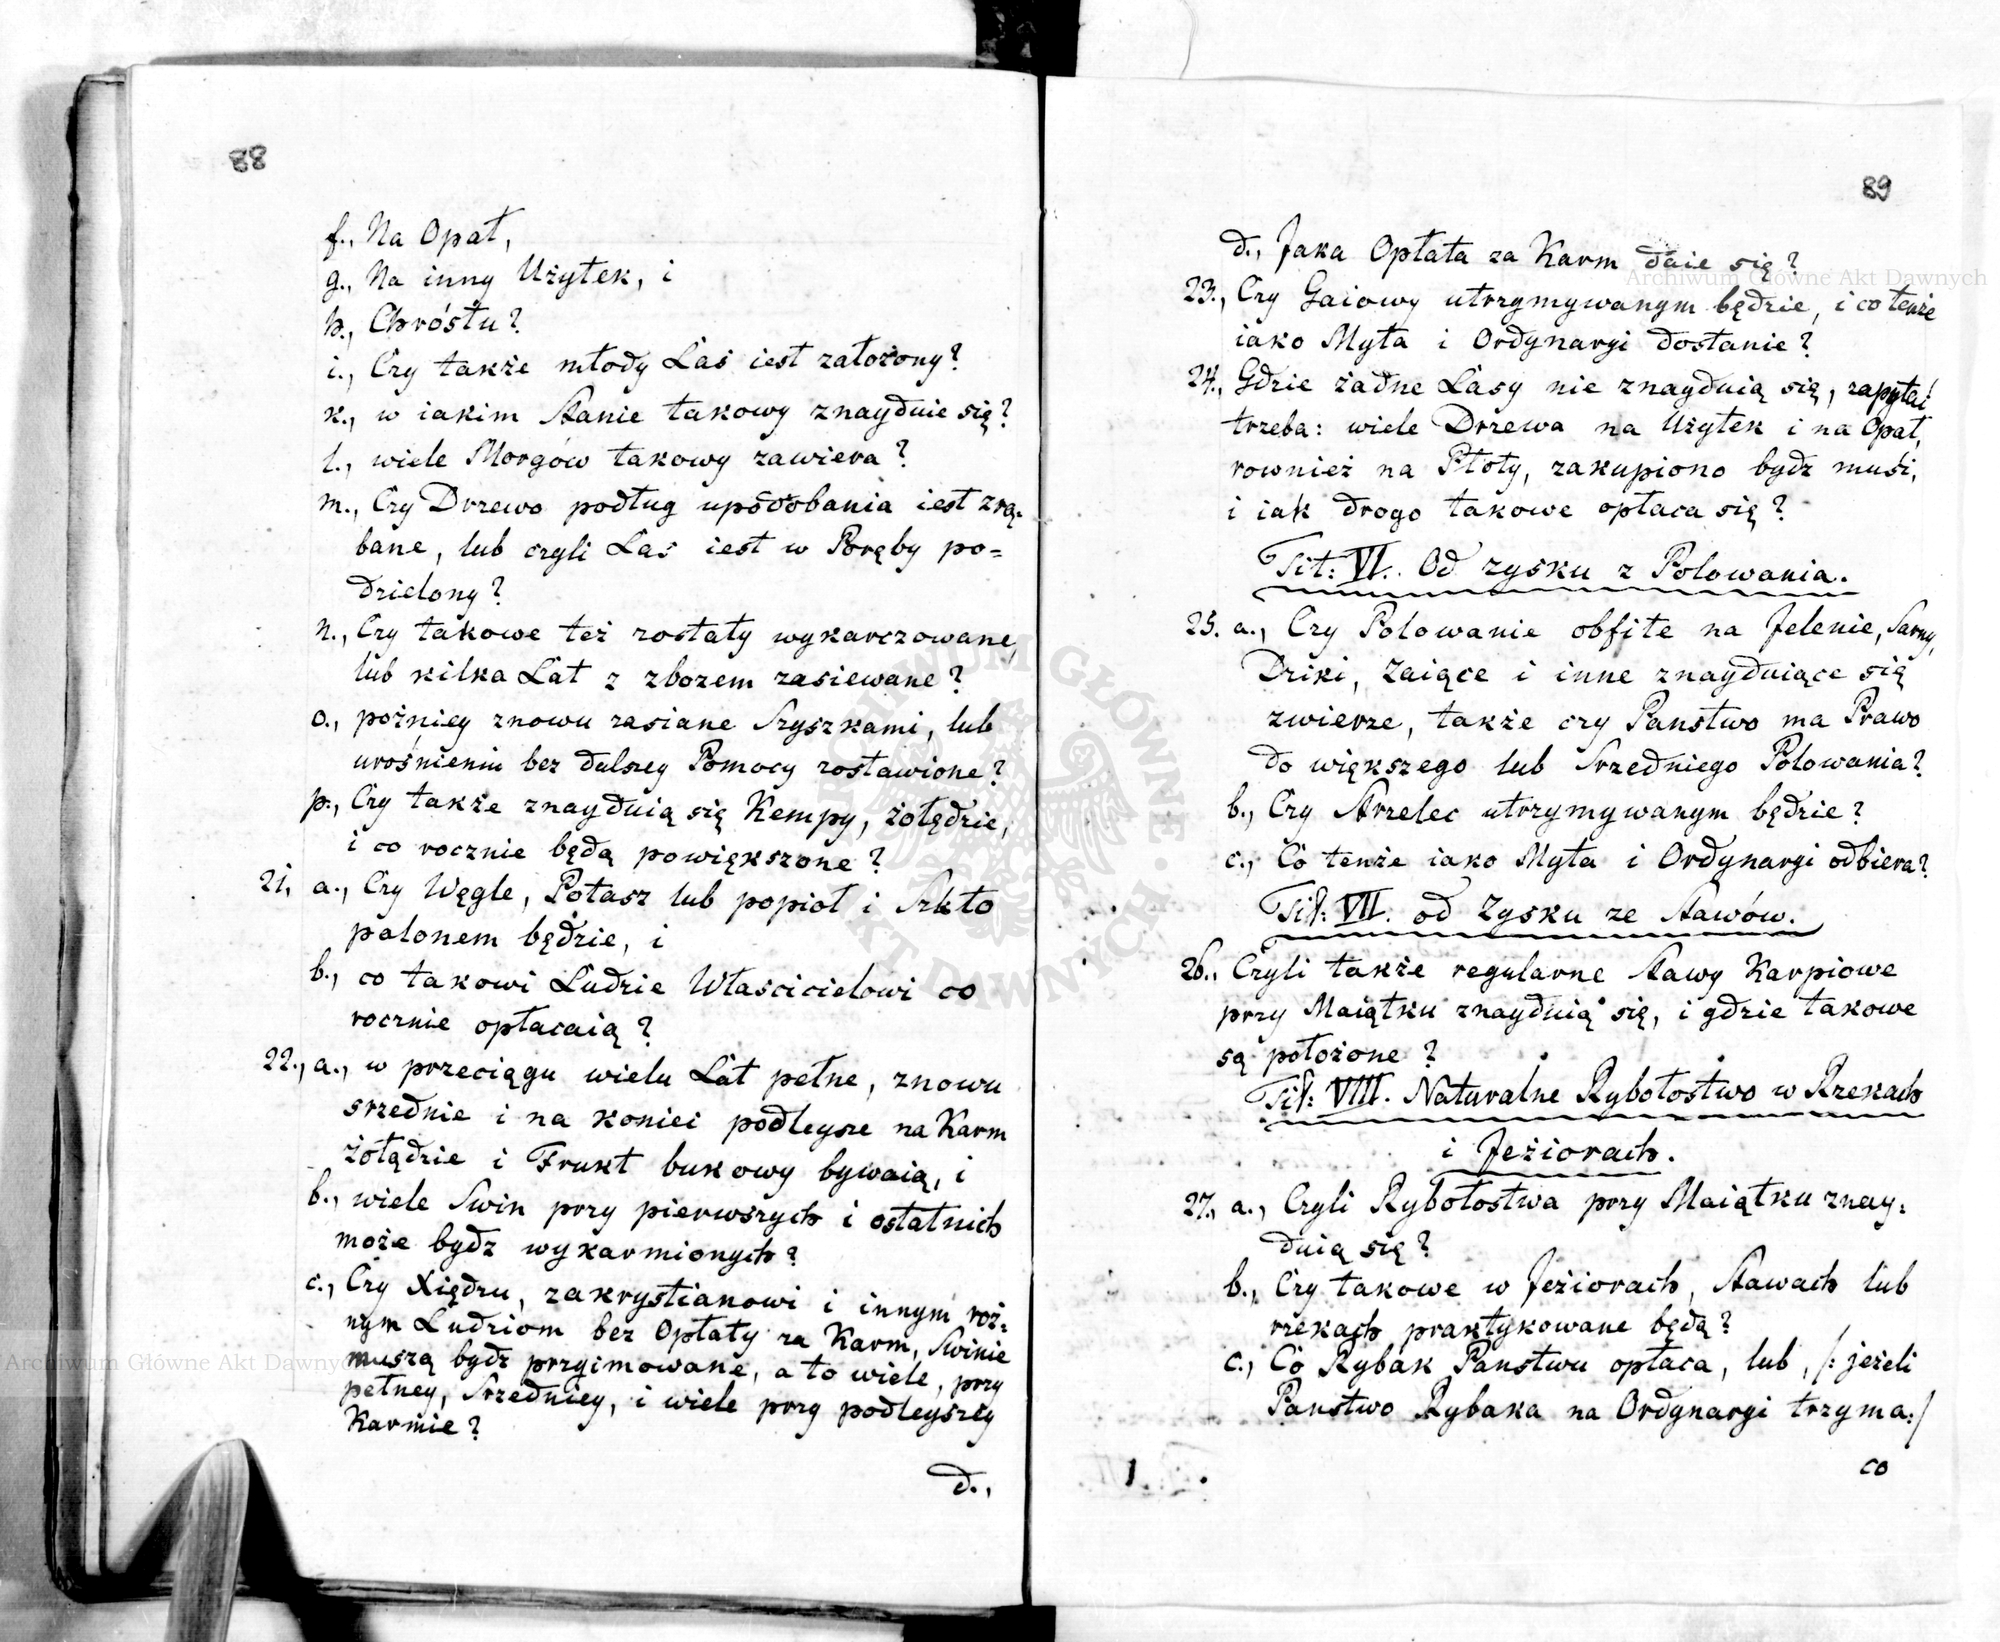 88
f., Na Opał,
g., Na inny Użytek, i
h., Chróstu?
i., Czy także młody Las iest założony?
k., w iakim Stanie takowy znayduie się?
l., wiele Morgów takowy zawiera?
m., Czy Drzewo podług upodobania iest zrą-
bane, lub czyli Las iest w Poręby po=
dzielony?
n., Czy takowe też zostały wykarczowane,
lub kilka Lat z zbozem zasiewane?
o., pożniey znowu zasiane Szyszkami, lub
urośnieniu bez dalszey Pomocy zostawione?
p., Czy także znayduią się Kempy, żołędzie,
i co rocznie będą powiększone?
21, a., Czy Węgle, Potasz lub popioł i Szkło
palonem będzie, i
b., co takowi Ludzie Własicicielowi co
rocznie opłacaią?
22., a., w przeciągu wielu Lat pełne, znowu
srzednie i na koniec podleysze na Karm
żołądzie i Frukt bukowy bywaią, i
b., wiele Swin przy pierwszych i ostatnich
może bydz wykarmionych?
c., Czy Xiędzu, zakrystianowi i innym roż=
nym Ludziom bez Opłaty za Karm, Swinie
muszą bydz przyimowane, a to wiele, przy
pełney, Srzedniey, i wiele przy podleyszey
Karmie?
d.,
89
d., Jaka Opłata za Karm daie się?
23., Czy Gaiowy utrzymywanym będzie, i co tenże
iako Myta i Ordynaryi dostanie?
24., Gdzie żadne Lasy nie znayduią się, zapytać
trzeba: wiele Drzewa na Użytek i na Opał,
rownież na Płoty, zakupiono bydz musi,
i iak drogo takowe opłaca się?
Tit: VI. Od zysku z Polowania.
25. a., Czy Polowanie obfite na Jelenie, Sarny,
Dziki, Zaiące i inne znayduiące się
zwierze, także czy Panstwo ma Prawo
do większego lub Srzedniego Polowania?
b., Czy Strzelec utrzymywanym będzie?
c., Co tenże iako Myta i Ordynaryi odbiera?
Tit: VII. od Zysku ze Stawów.
26., Czyli także regularne Stawy Karpiowe
przy Maiątku znayduią się, i gdzie takowe
są położone?
Tit: VIII. Naturalne Rybołostwo w Rzekach
i Jeżiorach.
27., a., Czyli Rybołostwa przy Maiątku znay:
duią się?
b., Czy takowe w Jeżiorach, Stawach lub
rzekach praktykowane będą?
c., Co Rybak Panstwu opłaca, lub, /: jeżeli
Panstwo Rybaka na Ordynaryi trzyma :/
co
Archiwum Główne Akt Dawnych
Archiwum Główne Akt Dawnych
ARCHIWUM GŁÓWNE · AKT DAWNYCH ·